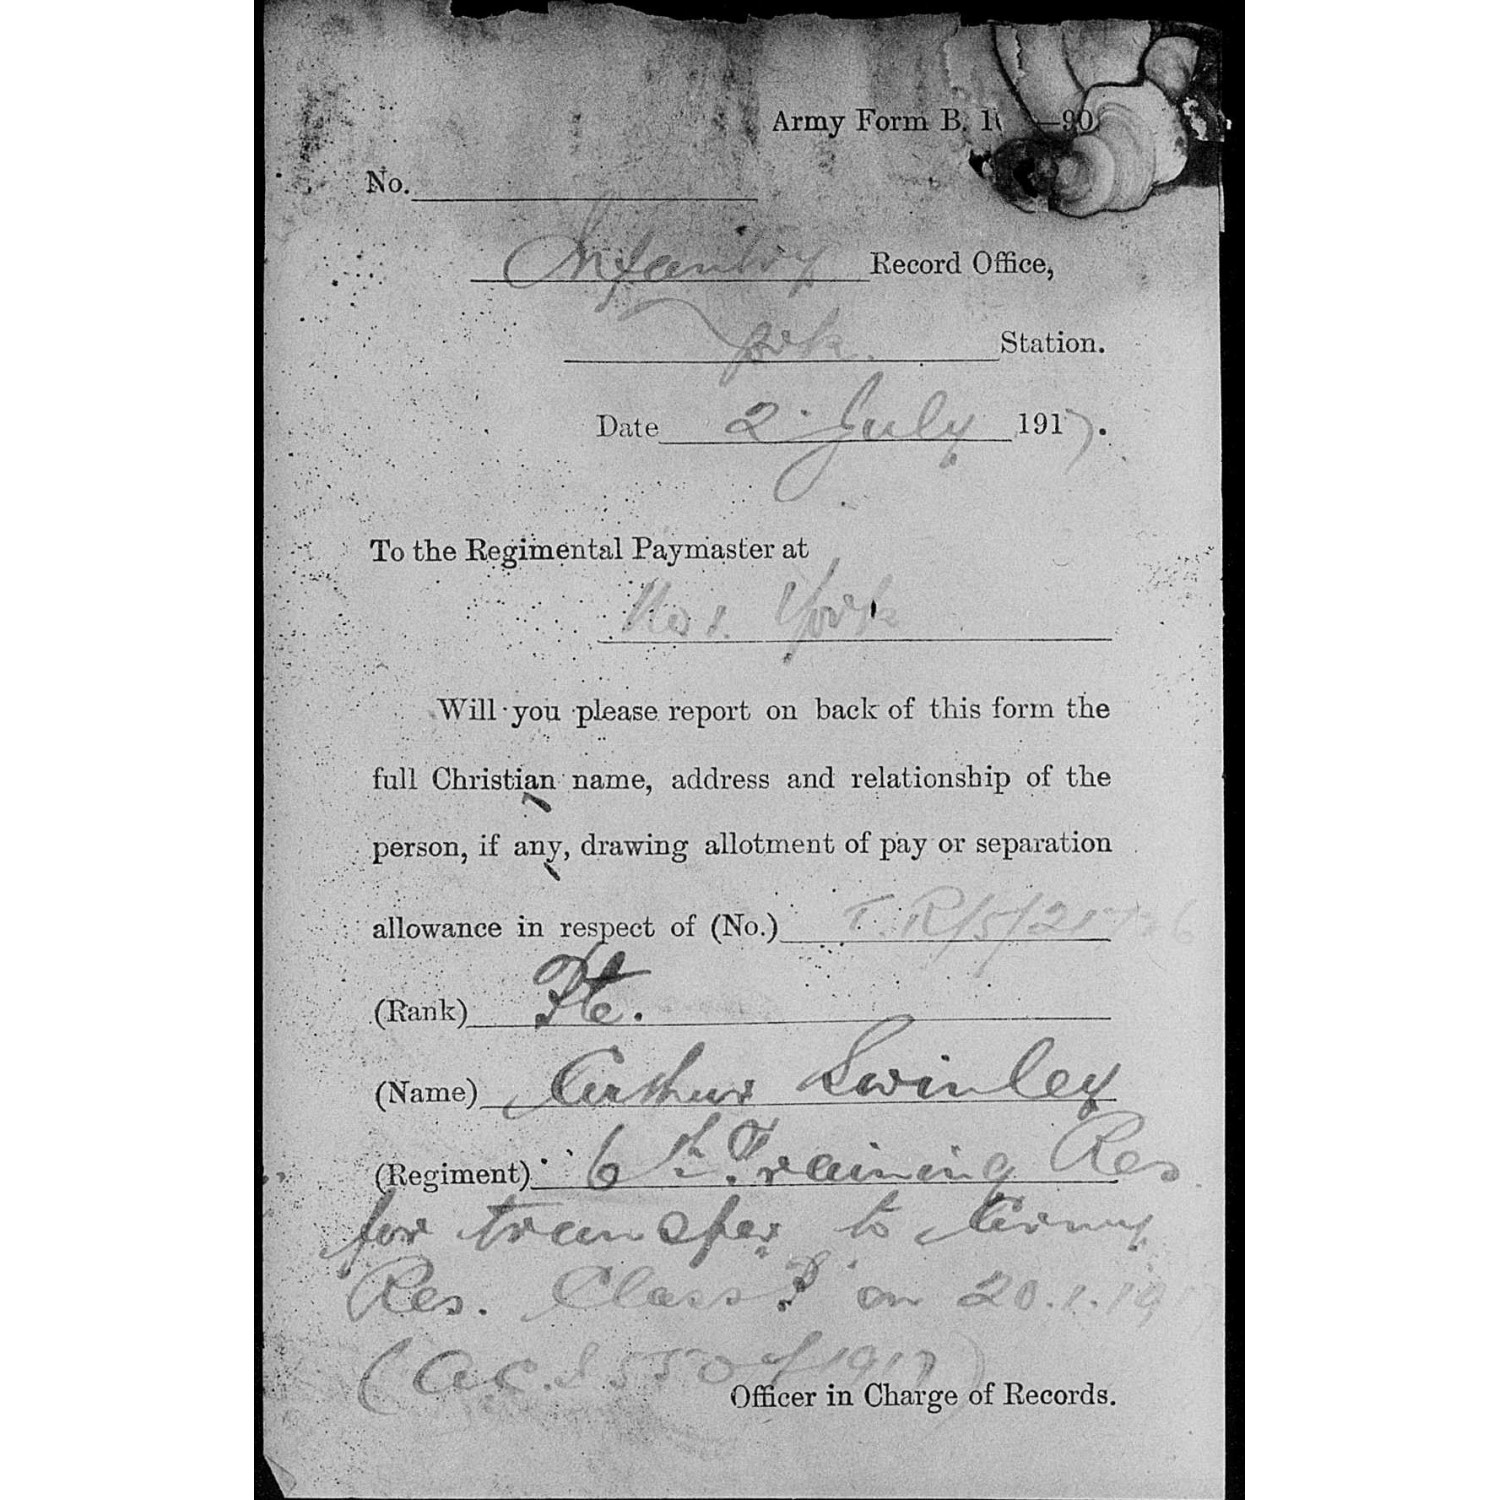 Army Form B. 1 —90
No.
Infantry Record Office,
York. Station.
Date 2 July 1917.
To the Regimental Paymaster at
York
Will you please report on back of this form the
full Christian name, address and relationship of the
person, if any, drawing allotment of pay or separation
allowance in respect of (No.) T.R/5/21
(Rank) Pte.
(Name) Arthur Swinley
(Regiment) 6th Training Res
for transfer to Army
Res. Class P on 20.1.19
(A.C.I 550 of 1917)
Officer in Charge of Records.